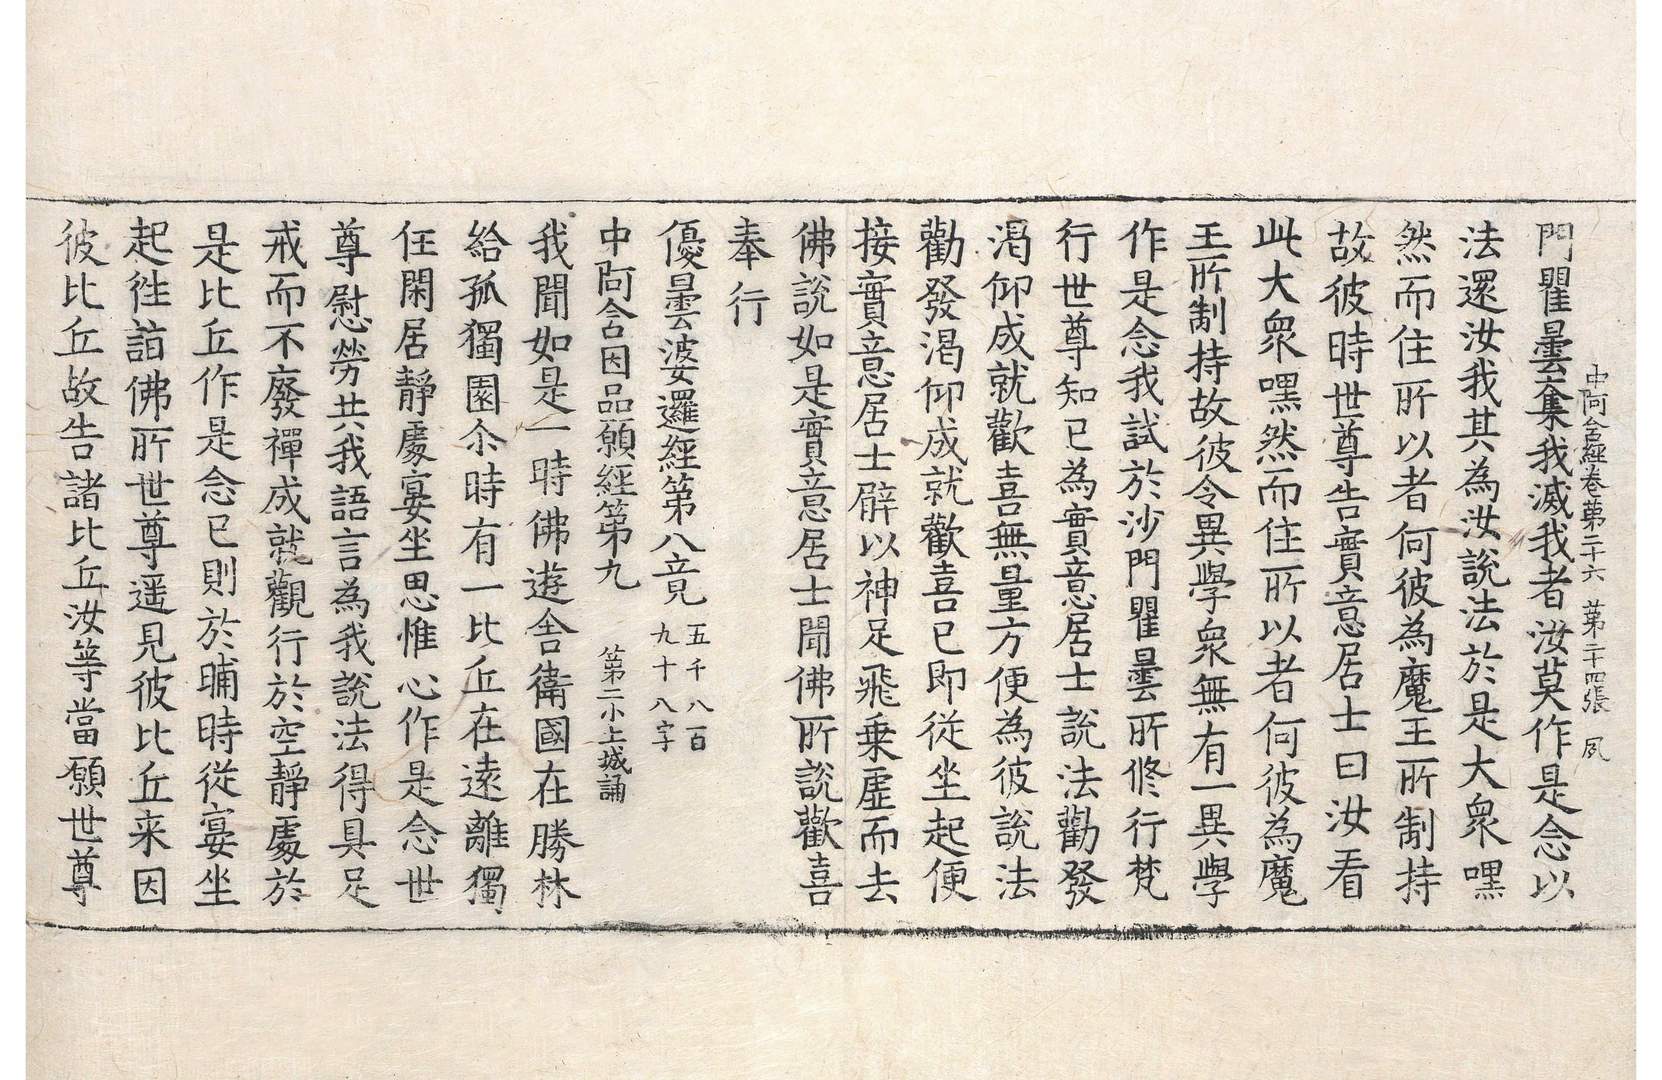 中阿含經卷第二十六　第二十四張　夙
門瞿曇奪我滅我者汝莫作是念以
法還汝我其為汝說法於是大衆嘿
然而住所以者何彼為魔王所制持
故彼時世尊告實意居士曰汝看
此大衆嘿然而住所以者何彼為魔
王所制持故彼令異學衆無有一異學
作是念我試於沙門瞿曇所修行梵
行世尊知已為實意居士說法勸發
渴仰成就歡喜無量方便為彼說法
勸發渴仰成就歡喜已即從坐起便
接實意居士臂以神足飛乗虛而去
佛說如是實意居士聞佛所說歡喜
奉行
優曇婆邏經第八竟　五千八百九十八字
中阿含因品願經第九　第二小土城誦
我聞如是一時佛遊舍衛國在勝林
給孤獨園尒時有一比丘在遠離獨
住閑居靜處宴坐思惟心作是念世
尊慰勞共我語言為我說法得具足
戒而不廢禪成就觀行於空靜處於
是比丘作是念已則於晡時從宴坐
起往詣佛所世尊遥見彼比丘来因
彼比丘故告諸比丘汝等當願世尊